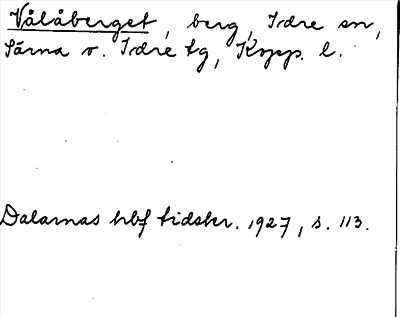 Vålåberget, berg, Idre sn,
Särna o. Idre tg, Kopp. l.
Dalarnas hbf tidskr. 1927, s. 113.